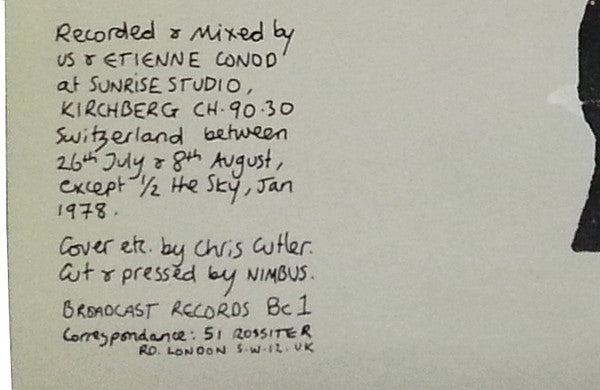 Recorded & Mixed by
us & ETIENNE CONOD
at SUNRISE STUDIO,
KIRCHBERG CH·90·30
Switzerland between
26th July & 8th August,
except 1/2 the Sky, Jan
1978.
Cover etc. by Chris Cutler.
Cut & pressed by NIMBUS.
BROADCAST RECORDS Bc1
Correspondance: 51 ROSSITER
RD. LONDON S·W·12. UK